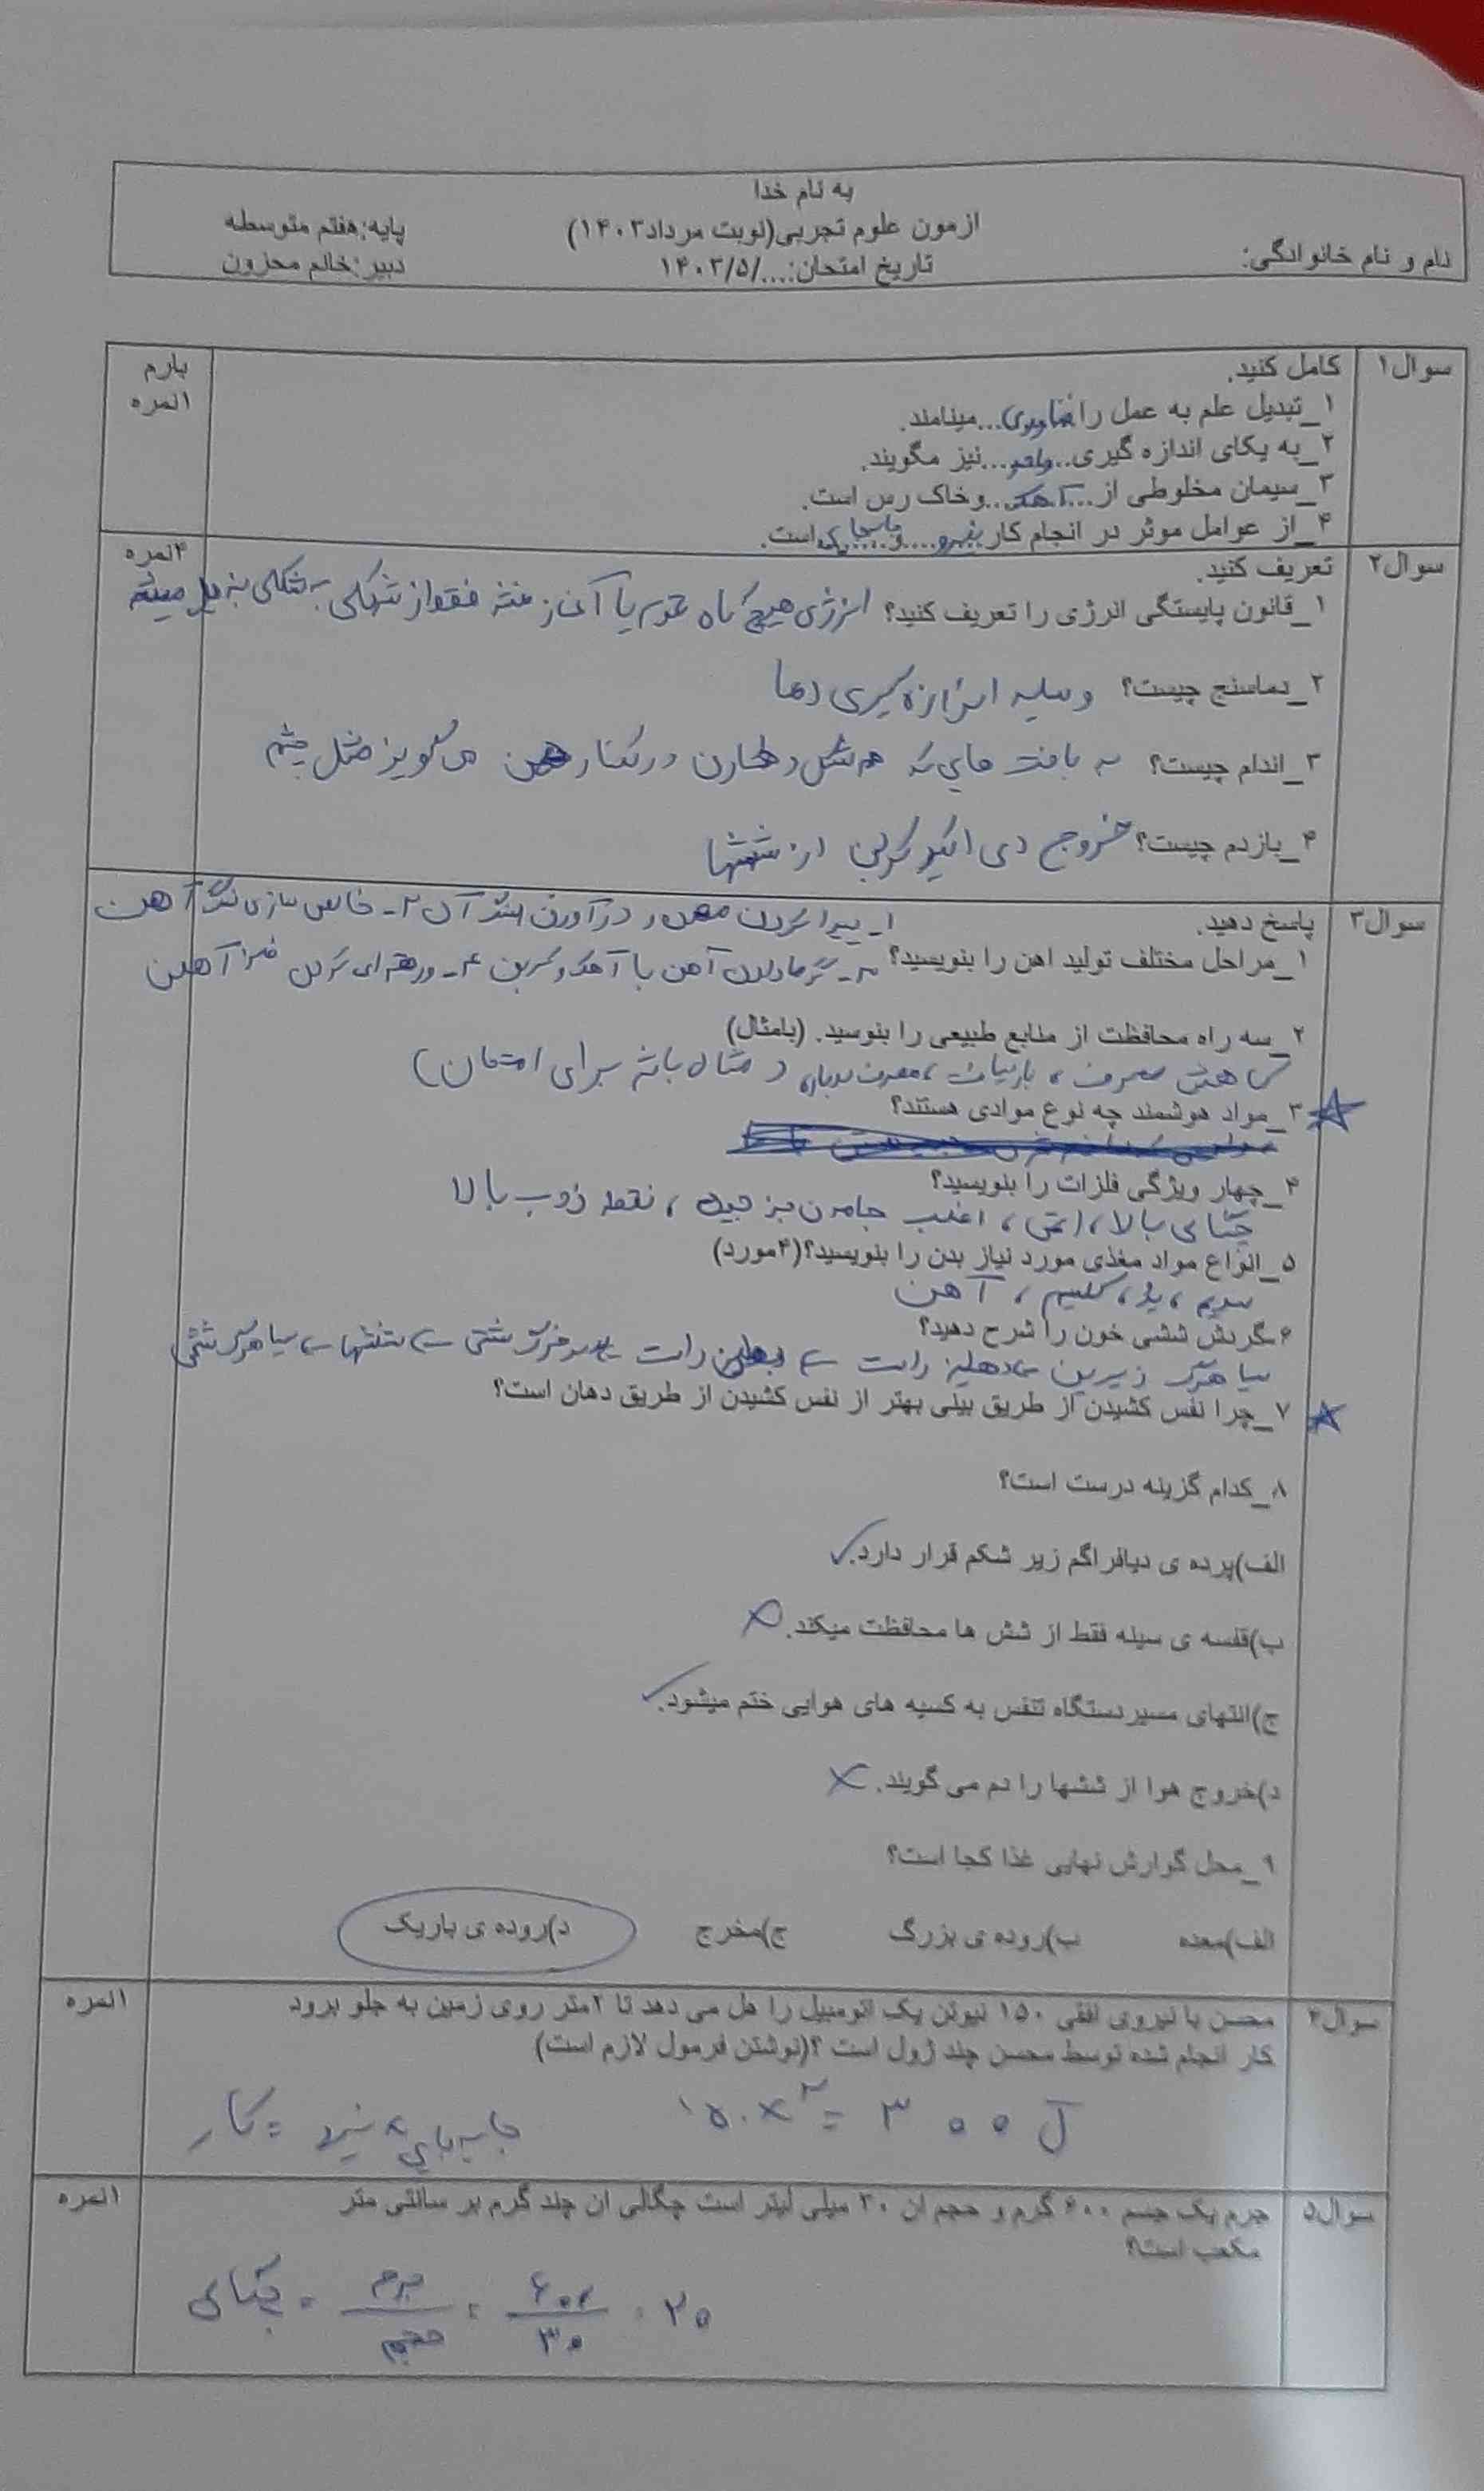 به نام خدا
ازمون علوم تجربی(نوبت مرداد۱۴۰۳)
پایه:هفتم متوسطه
نام و نام خانوادگی:
تاریخ امتحان:..../۱۴۰۳/۵
دبیر:خانم محزون
سوال۱
کامل کنید.
بارم
۱نمره
۱_تبدیل علم به عمل را فناوری...مینامند.
۲_به یکای اندازه گیری..واحد...نیز مگویند.
۳_سیمان مخلوطی از ...آهک...وخاک رس است.
۴_از عوامل موثر در انجام کار نیرو....و....است.
سوال۲
تعریف کنید.
۴نمره
۱_قانون پایستگی انرژی را تعریف کنید؟ انرژی هیچ گاه تموم یا آغاز فقط از شکلی به شکلی میشه
۲_دماسنج چیست؟ وسیله اندازه گیری دما
۳_اندام چیست؟ به بافت هایی که هم شکل و در کنار هستن می گویند مثل چشم
۴_بازدم چیست؟ خروج دی اکسید کربن از ششها
سوال۳
پاسخ دهید.
۱- پیدا کردن معدن و درآوردن سنگ آن ۲- خالص سازی سنگ آهن
۱_مراحل مختلف تولید اهن را بنویسید؟ ۳- گرما دادن آهن با آهک و کربن ۴- ورقه ای کردن فلز آهن
۲_سه راه محافظت از منابع طبیعی را بنوسید. (بامثال)
کاهش مصرف ، بازیافت ، مصرف دوباره ( مثال باشه برای امتحان)
۳_مواد هوشمند چه نوع موادی هستند؟
۴_چهار ویژگی فلزات را بنویسید؟
چگالی بالا، ، اغلب جامدن بجز جیوه ، نقطه ذوب بالا
۵_انواع مواد مغذی مورد نیاز بدن را بنویسید؟(۴مورد)
سدیم ، ید ، کلسیم ، آهن
۶-گردش ششی خون را شرح دهید؟
سیاهرگ زیرین ← دهلیز راست ← بطن راست ← سرخرگ ششی ← ششها ← سیاهرگ ششی
۷_چرا نفس کشیدن از طریق بینی بهتر از نفس کشیدن از طریق دهان است؟
۸_کدام گزینه درست است؟
الف)پرده ی دیافراگم زیر شکم قرار دارد.✓
ب)قفسه ی سینه فقط از شش ها محافظت میکند.✗
ج)انتهای مسیردستگاه تنفس به کسیه های هوایی ختم میشود.✓
د)خروج هوا از ششها را دم می گویند.✗
۹_محل گوارش نهایی غذا کجا است؟
الف)معده ب)روده ی بزرگ ج)مخرج د)روده ی باریک
سوال۴
محسن با نیروی افقی ۱۵۰ نیوتن یک اتومبیل را هل می دهد تا ۲متر روی زمین به جلو برود
۱نمره
کار انجام شده توسط محسن چند ژول است ؟(نوشتن فرمول لازم است)
کار = نیرو × جابه جایی ۱۵۰×۲ = ۳۰۰ J
سوال۵
جرم یک جسم ۶۰۰ گرم و حجم ان ۳۰ میلی لیتر است چگالی ان چند گرم بر سانتی متر
۱نمره
مکعب است؟
چگالی = جرم / حجم = ۶۰۰ / ۳۰ = ۲۰